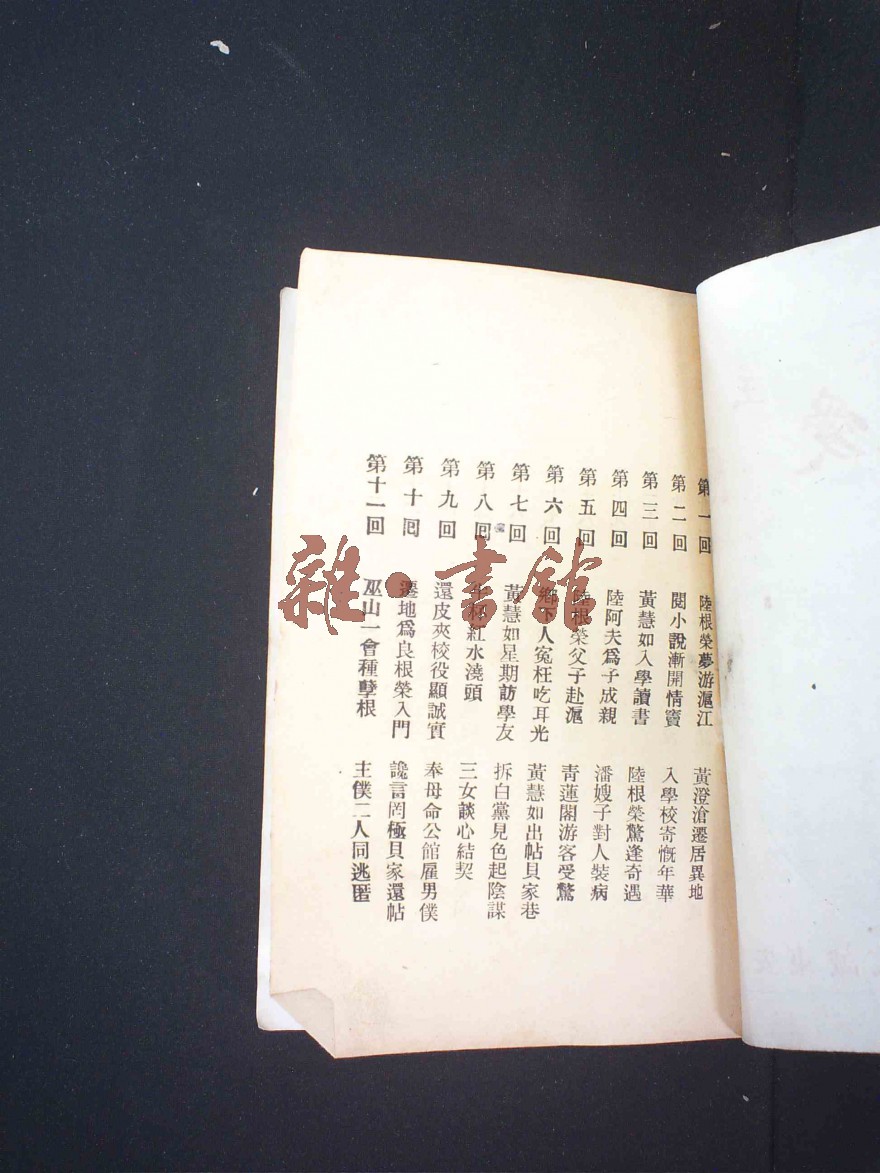 第一回 陸根榮夢游滬江 黃澄滄遷居異地
第二回 閱小說漸開情竇 入學校寄慨年華
第三回 黃慧如入學讀書 陸根榮驚逢奇遇
第四回 陸阿夫爲子成親 潘嫂子對人裝病
第五回 陸根榮父子赴滬 青蓮閣游客受驚
第六回 鄉下人冤枉吃耳光 黃慧如出帖貝家巷
第七回 黃慧如星期訪學友 拆白黨見色起陰謀
第八回 紅水澆頭 三女談心結契
第九回 還皮夾校役顯誠實 奉母命公館雇男僕
第十回 遷地爲良根榮入門 讒言罔極貝家還帖
第十一回 巫山一會種孽根 主僕二人同逃匿
雜·書館
愛